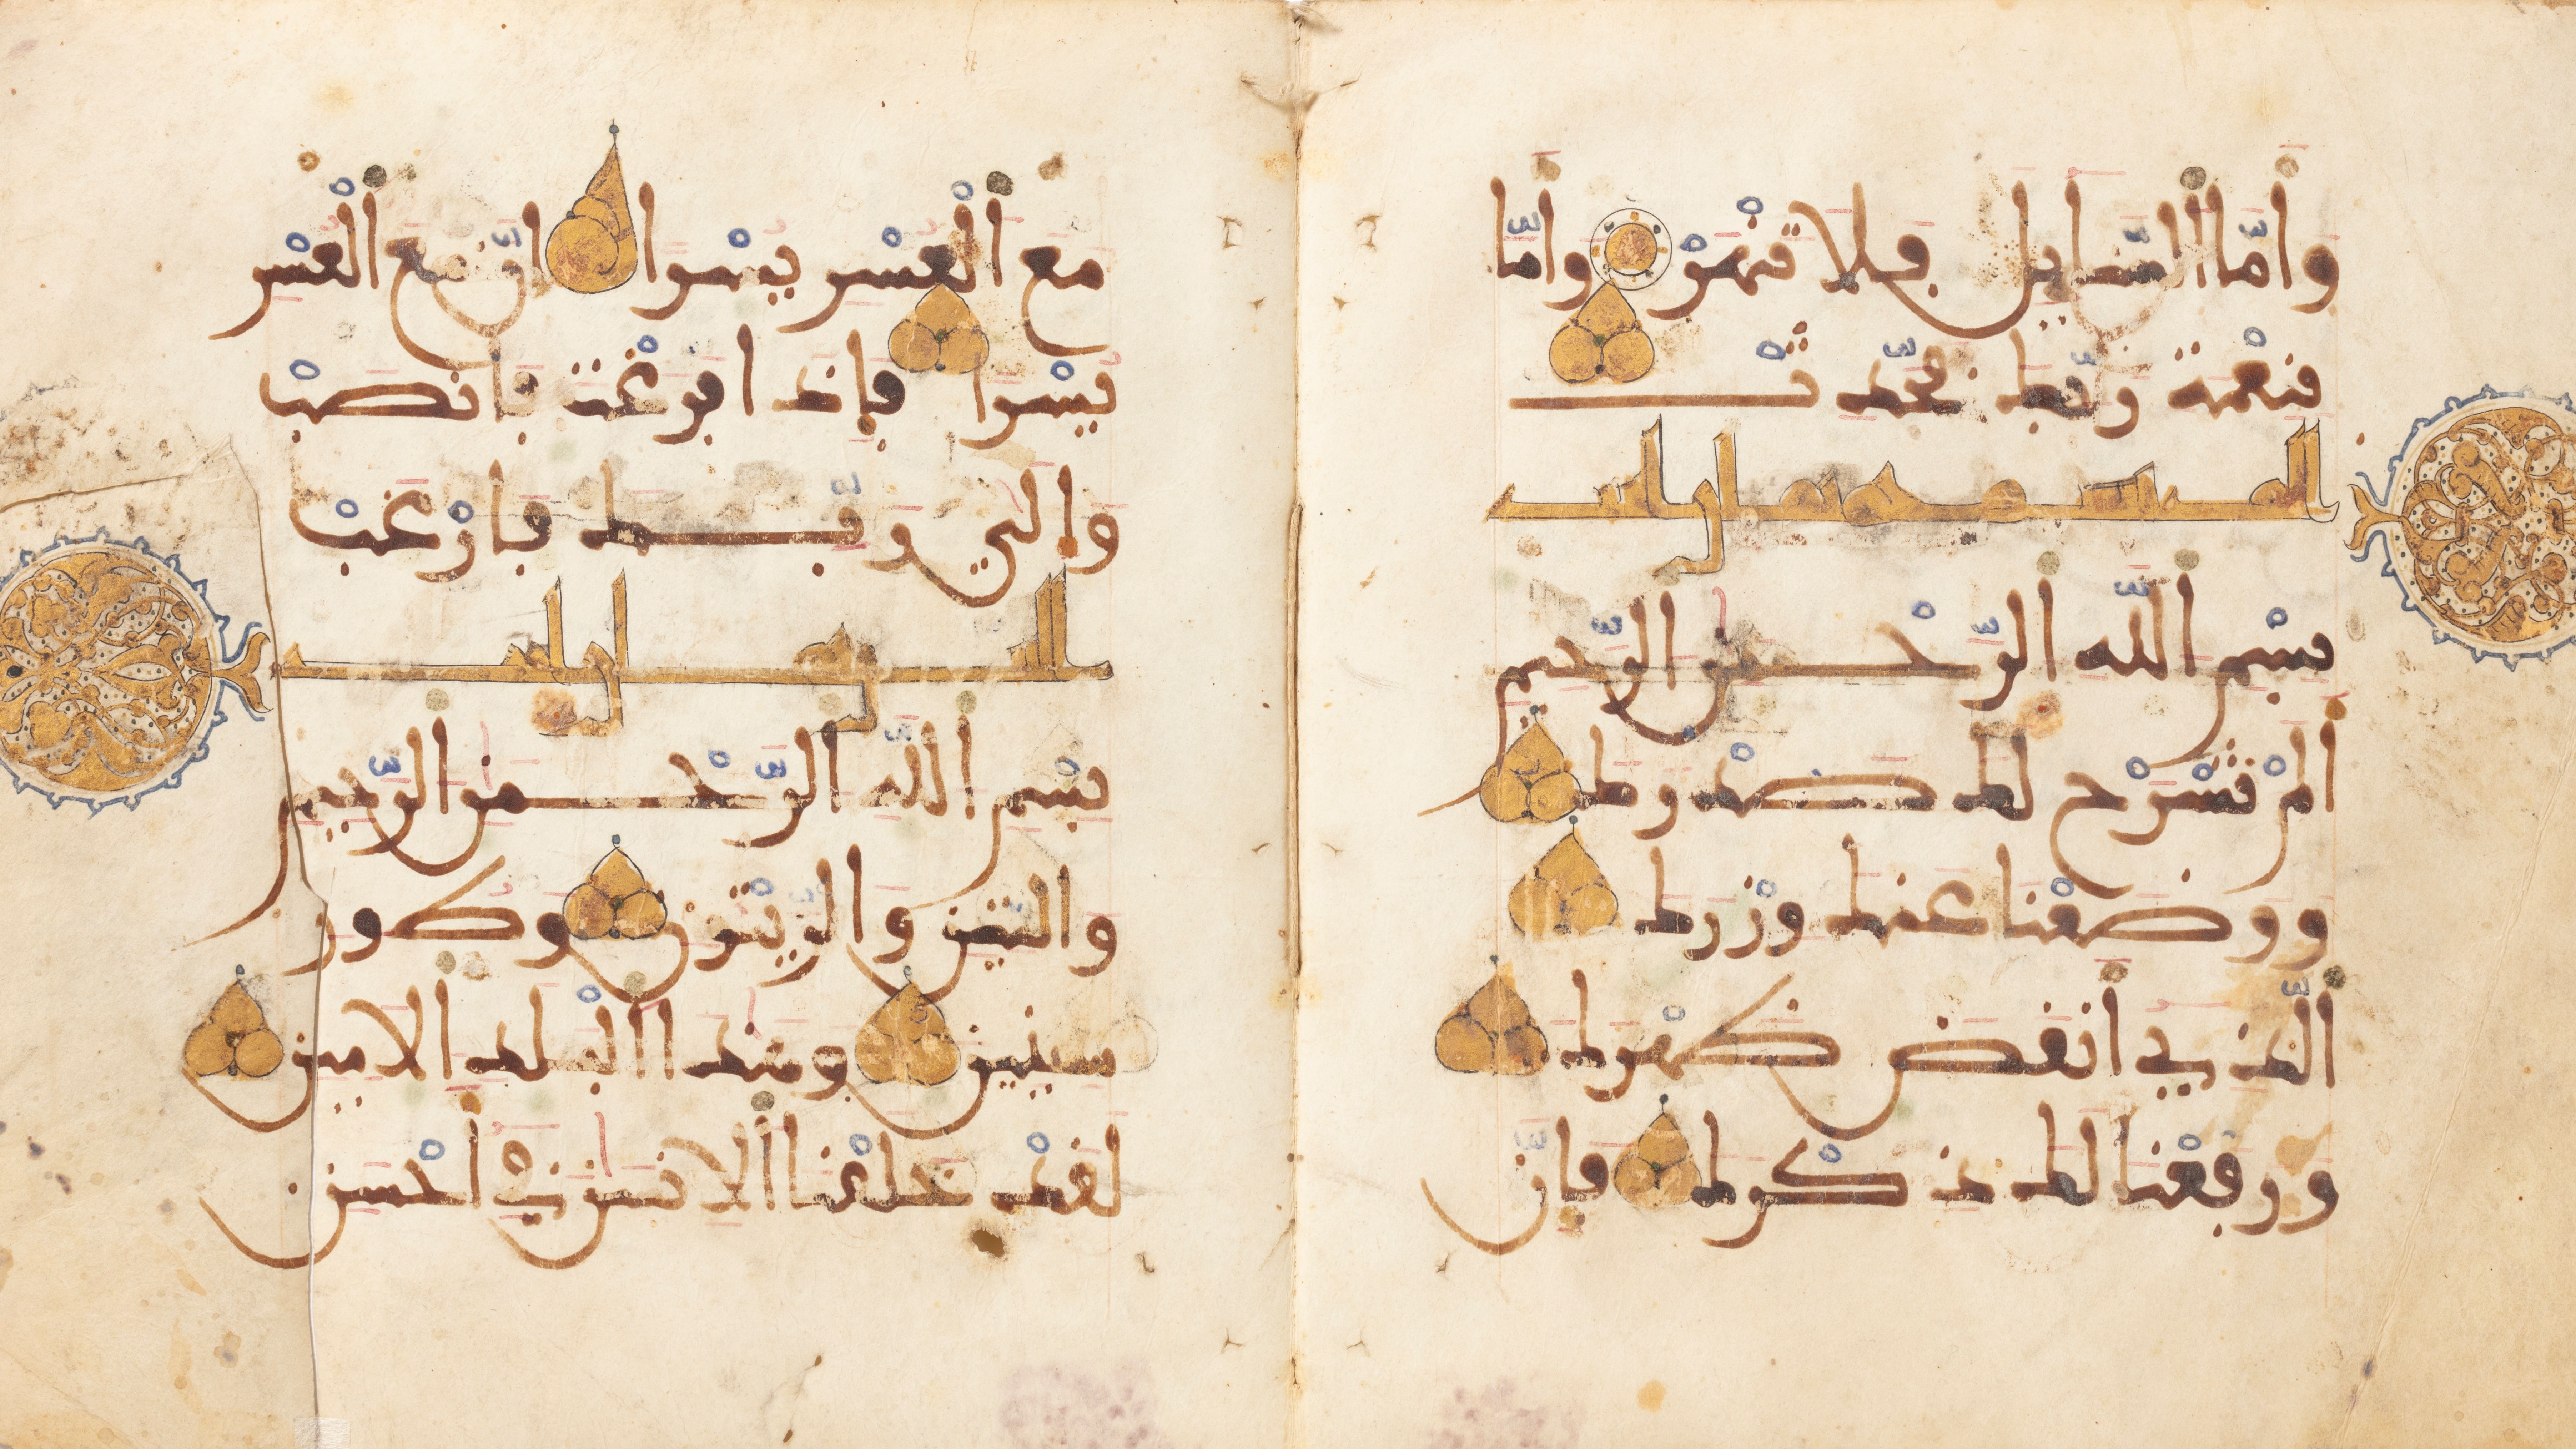 وأمّا ألسّايل فلا تنهرْ وأمّا
بنعْمة ربّك فحدّثْ
بسْم ألله ألرّحْمن ألرّحيم
ألمْ نشْرحْ لك صدْرك
ووضعْنا عنك وزْرك
ألّذي أنقض ظهْرك
ورفعْنا لك ذكْرك فإنّ
مع ألْعسْر يسْرا إنّ مع ألْعسْر
يسْرا فإذا فرغْت فانصبْ
وإلى ربّك فارْغبْ
بسْم ألله ألرّحْمن ألرّحيم
والتّين والزّيْتون وطور
سينين وهذا ألْبلد ألامين
لقدْ خلقْنا ألانسن في أحْسن